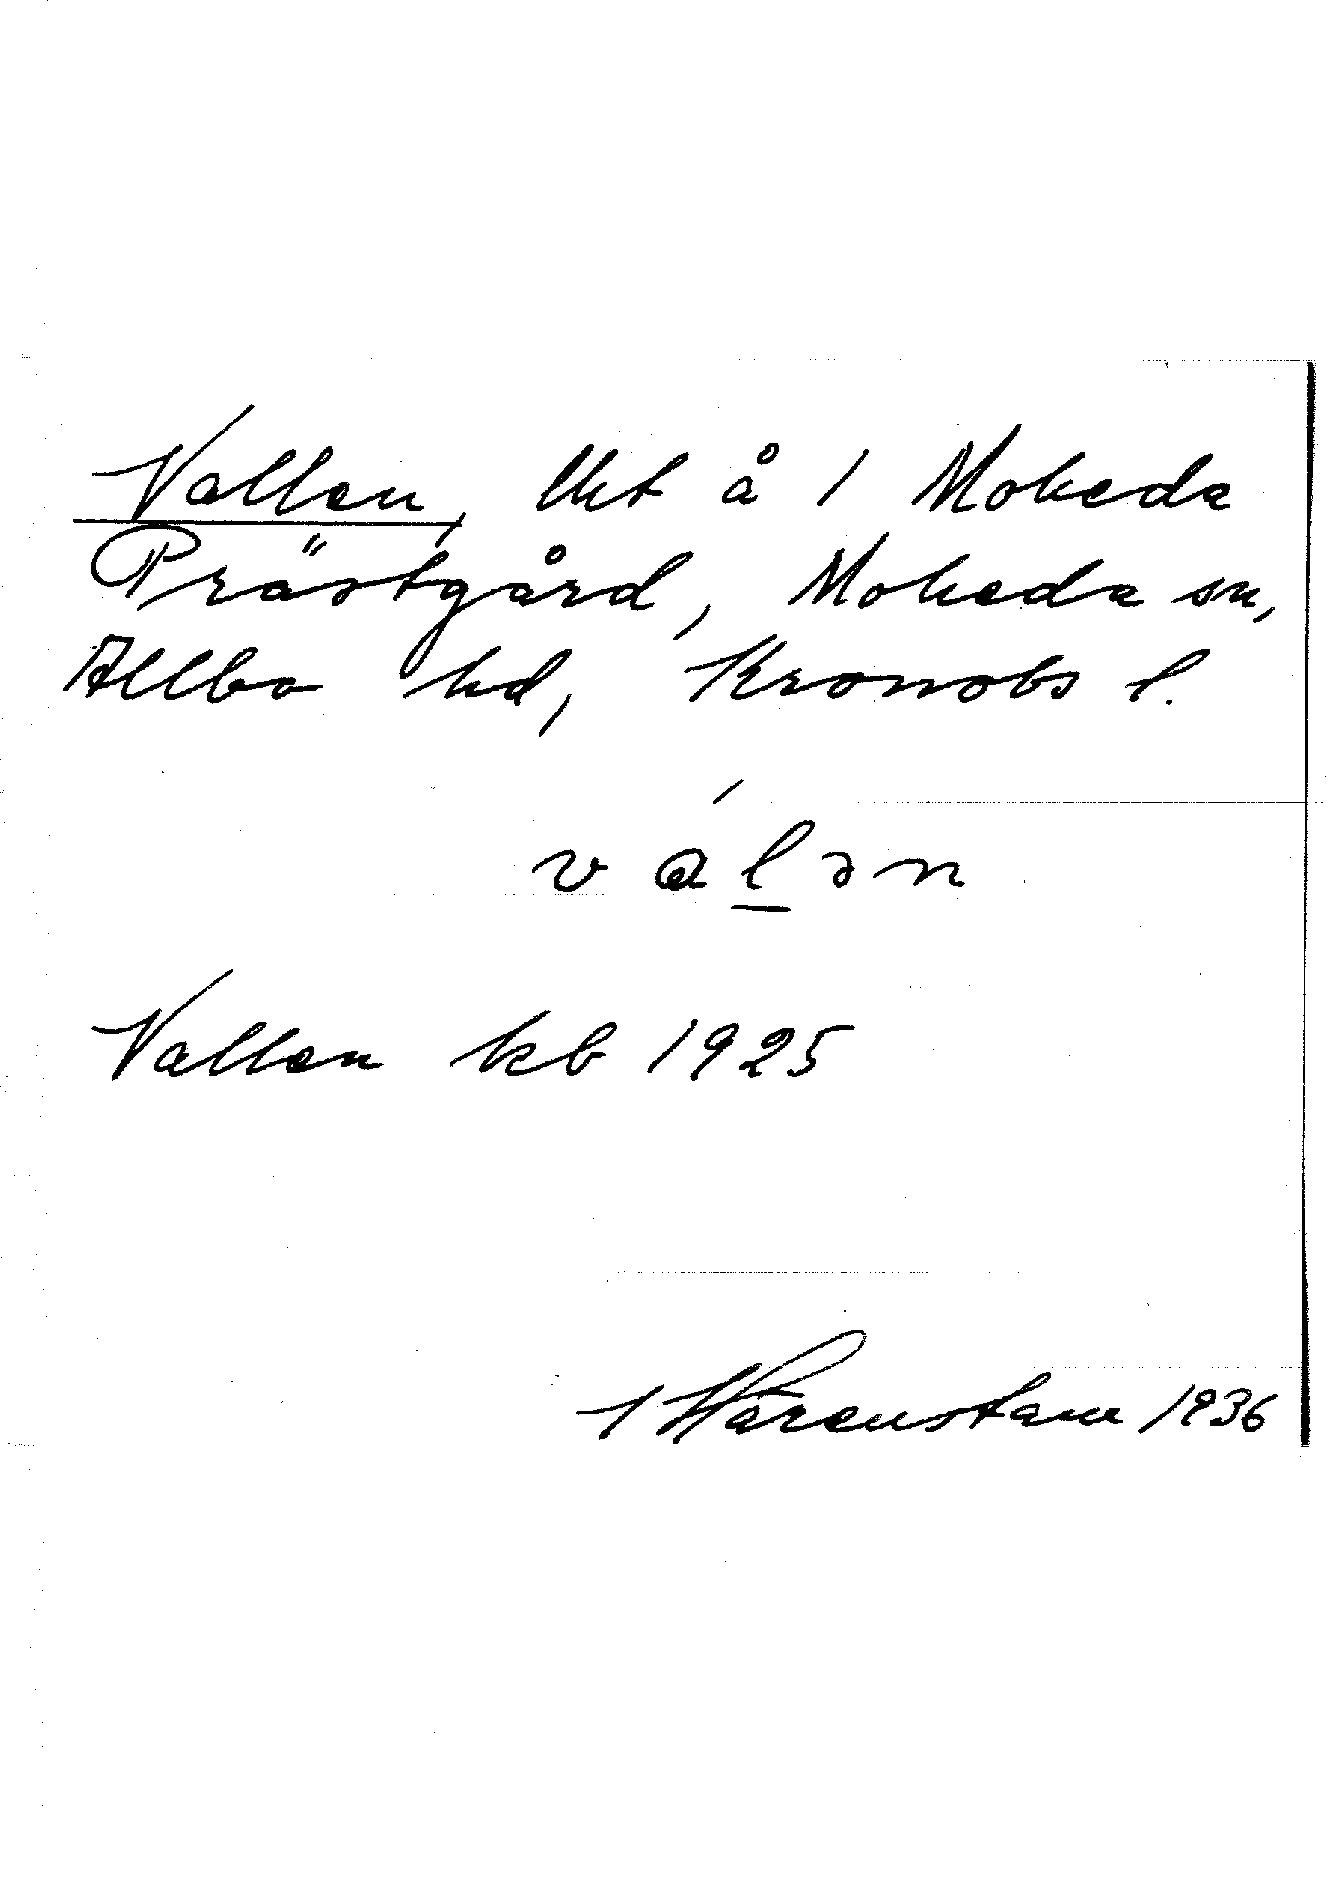 Vallen, lht å 1 Moheda
Prästgård, Moheda sn,
Allbo hd, Kronobs l.
vál̲ən
Vallen kb 1925
I Härenstam 1936